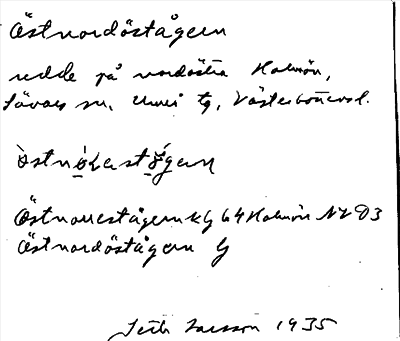 Östnordöstågern
udde på nordöstra Holmön,
Sävars sn, Umeå tg, Västerbottens l.
Östnorrestågern kG 64 Holmön NV D3
Östnordöstågern G
Seth Larsson 1935